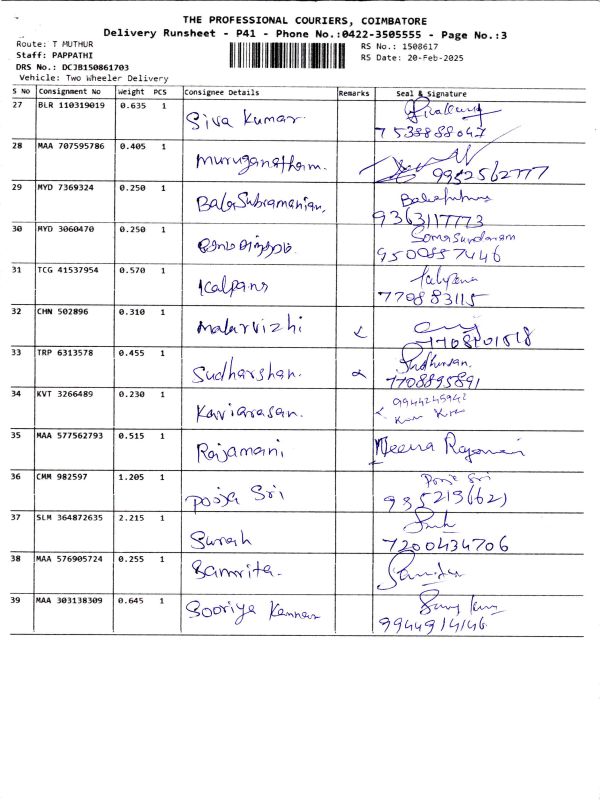 THE PROFESSIONAL COURIERS, COIMBATORE
Delivery Runsheet - P41 - Phone No.:0422-3505555 - Page No.:3
Route: T MUTHUR
RS No.: 1508617
Staff: PAPPATHI
RS Date: 20-Feb-2025
DRS No.: DCJB150861703
Vehicle: Two Wheeler Delivery
S No Consignment No Weight PCS Consignee Details Remarks Seal & Signature
27 BLR 110319019 0.635 1 Siva Kumar
7538888047
28 MAA 707595786 0.405 1 Muruganatham. 9952562777
29 MYD 7369324 0.250 1 BalaSubramanian.
9363117773
30 MYD 3060470 0.250 1 Somasundaram
9500857446
31 TCG 41537954 0.570 1 Kalpana Kalpana
770883115
32 CHN 502896 0.310 1 Malarvizhi
33 TRP 6313578 0.455 1 Sudharshan. Sudharsan.
7708895891
34 KVT 3266489 0.230 1 Kaviarasan. 9944245942
35 MAA 577562793 0.515 1 Rajamani Meena Rajamani
36 CMM 982597 1.205 1 Pooja Sri Pooja Sri
37 SLM 364872635 2.215 1 Suresh
7200434706
38 MAA 576905724 0.255 1 Samrita.
39 MAA 303138309 0.645 1 Sooriya Kannan
9944914146